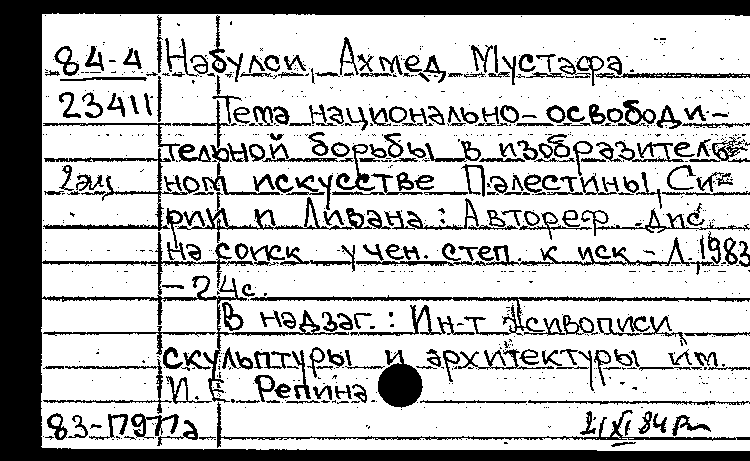 84-4 Набулси, Ахмед Мустафа.
23411 Тема национально-освободи-
тельной борьбы в изобразитель-
2 экз ном искусстве Палестины, Си-
рии и Ливана: Автореф. дис.
на соиск учен. степ. к. иск - Л, 1983
- 24с.
В надзаг.: Ин-т живописи,
скульптуры и архитектуры им.
И. Е. Репина
83-17977а 21 XI 84